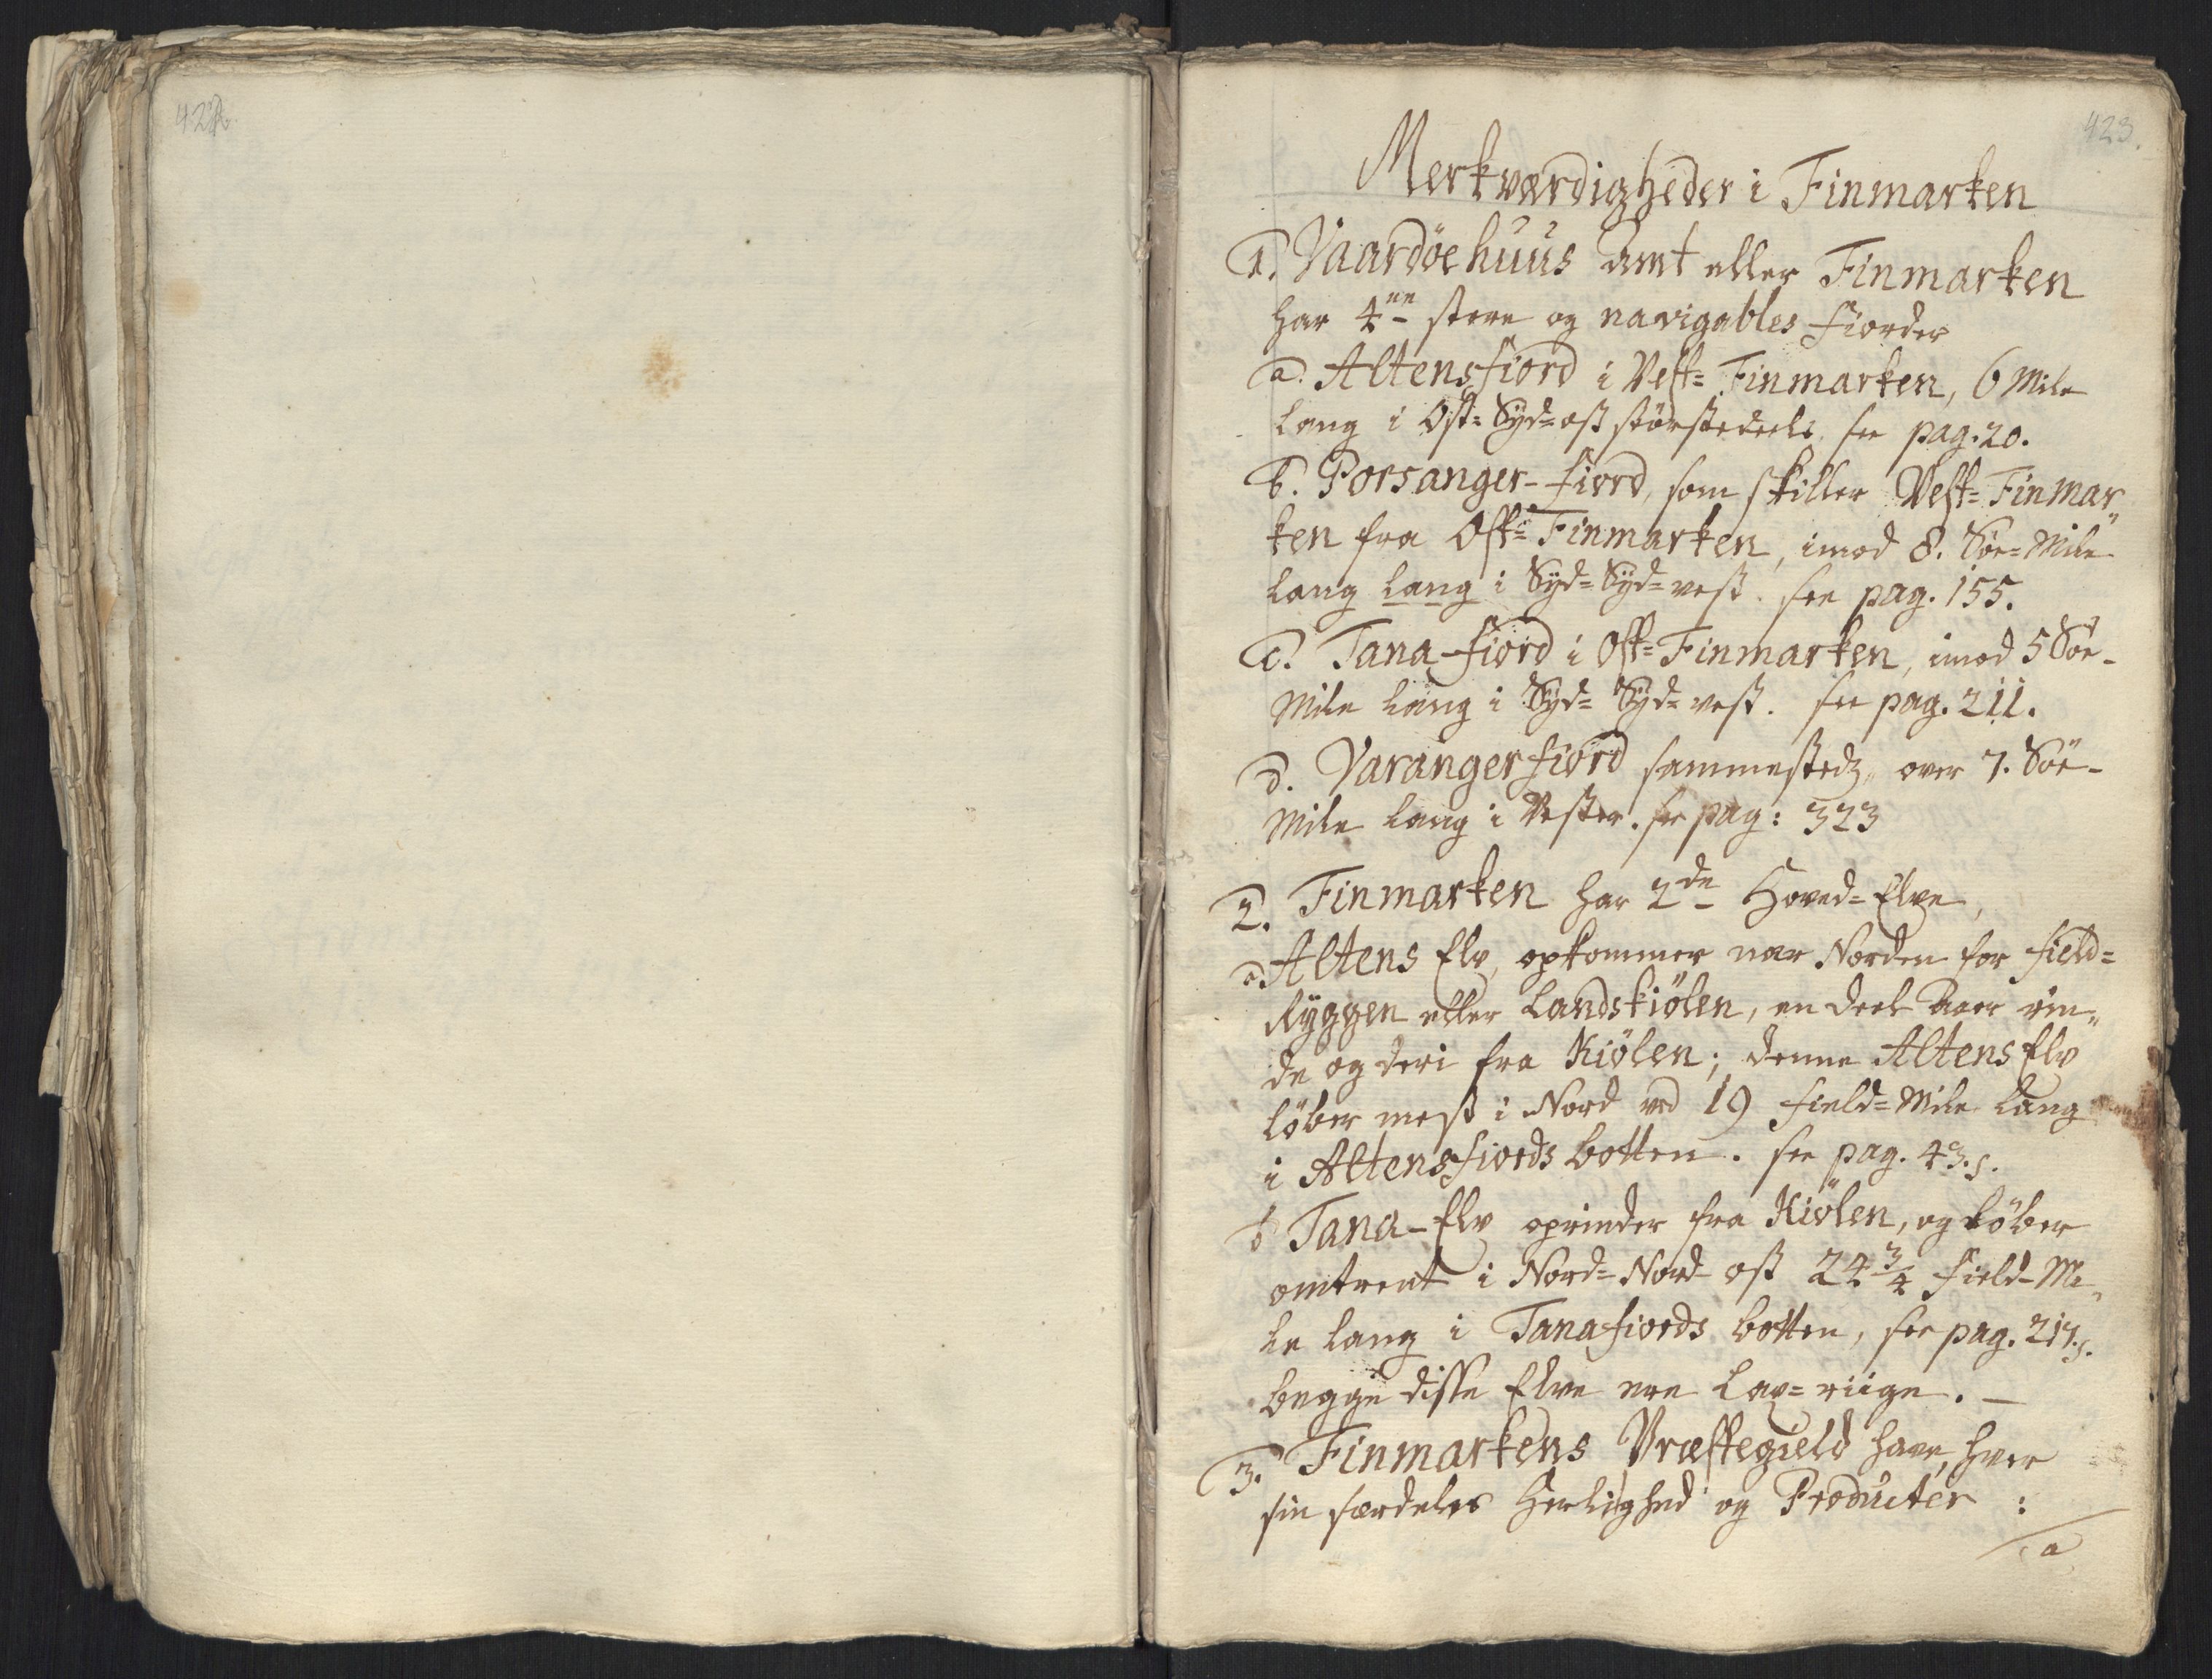 422.
423.
Merkværdigheder i Finmarken
1. Vaardöehuus amt eller Finmarken
har 4re store og navigables fiorder
a. Altensfiord i Vest= Finmarken, 6 Mile
lang i Ost= Syd=ost störstedeels. see pag. 20.
b. Porsanger-fiord, som skiller Vest= Finmar„
ken fra Ost= Finmarken, imod 8. Söe= Mile
lang lang i Syd= Syd= vest. see pag. 155.
c. Tana-fiord i Ost= Finmarken, imod 5 Söe-
Mile lang i Syd= Syd= vest. see pag. 211.
d. Varanger fiord sammestedz, over 7. Söe-
Mile lang i Vester. see pag: 323
2. Finmarken har 2de Hoved= Elve,
a. Altens Elv, opkommer nær Norden for field=
Ryggen eller Landskiölen, en deel Aaer rin„
de og deri fra Kiölen; denne Altens Elv
löber mest i Nord ved 19 field= Mile lang
i Altensfiords botten. see pag. 43. s.
b Tana-Elv oprinder fra Kiölen, og löber
omtrent i Nord= Nord- ost 24 3/4 field- Mi„
le lang i Tanafiords botten, see pag. 217. s.
begge disse Elve ere Lax= riige. —
3. Finmarkens Præstegield have, hver
sin særdeles Herlighed og Producter :
a